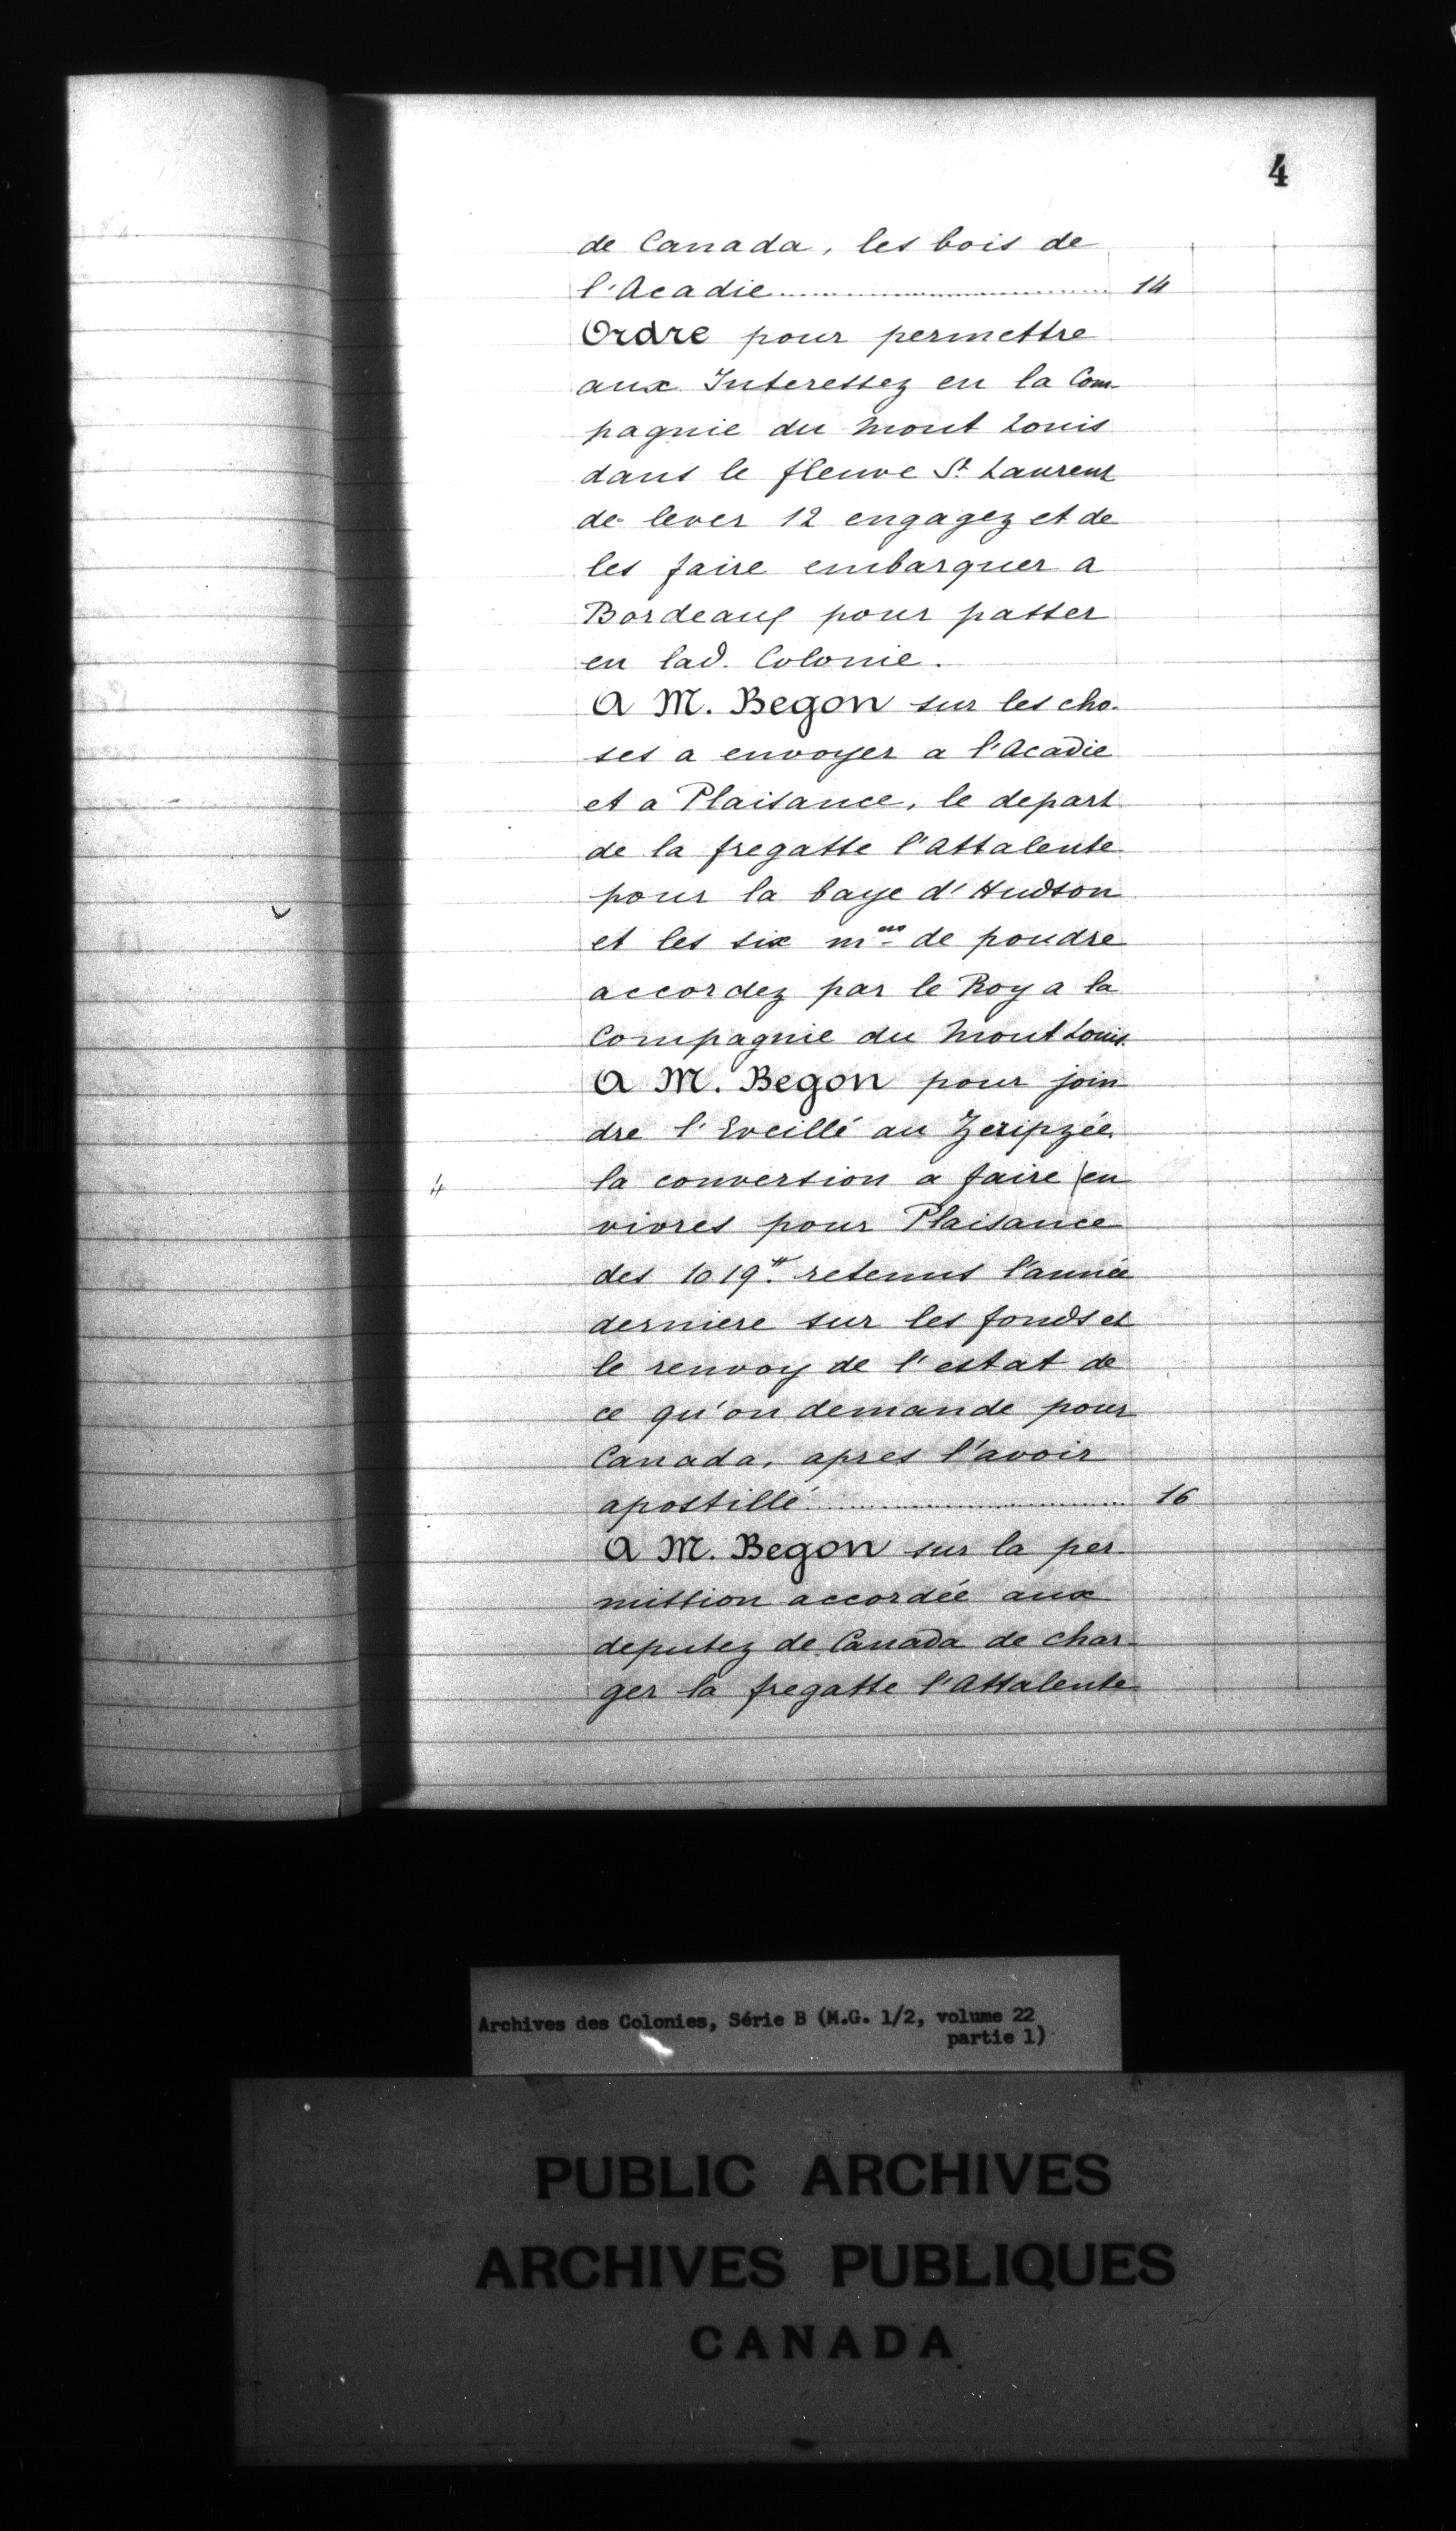 4
de Canada, les bois de
l'Acadie.................... 14
Ordre pour permettre
aux Interessez en la Com-
pagnie du Mont Louis
dans le fleuve St Laurent
de lever 12 engagez et de
les faire embarquer a
Bordeaux pour passer
en lad. Colonie.
A M. Begon sur les cho-
ses a envoyer a l'Acadie
et a Plaisance, le depart
de la fregatte l'Attalente
pour la baye d'Hudson
et les six m de poudre
accordez par le Roy a la
Compagnie du Mont Louis.
A M. Begon pour join
dre l'Eveillé au
la conversion a faire en
4
vivres pour Plaisance
des 1019# retenus l'année
derniere sur les fonds et
le renvoy de l'estat de
ce qu'on demande pour
Canada, apres l'avoir
apostillé.................... 16
A M. Begon sur la per-
mission accordée aux
deputez de Canada de char-
ger la fregatte l'Attalente
Archives des Colonies, Série B (M.G. 1/2, volume 22
partie 1)
PUBLIC ARCHIVES
ARCHIVES PUBLIQUES
CANADA